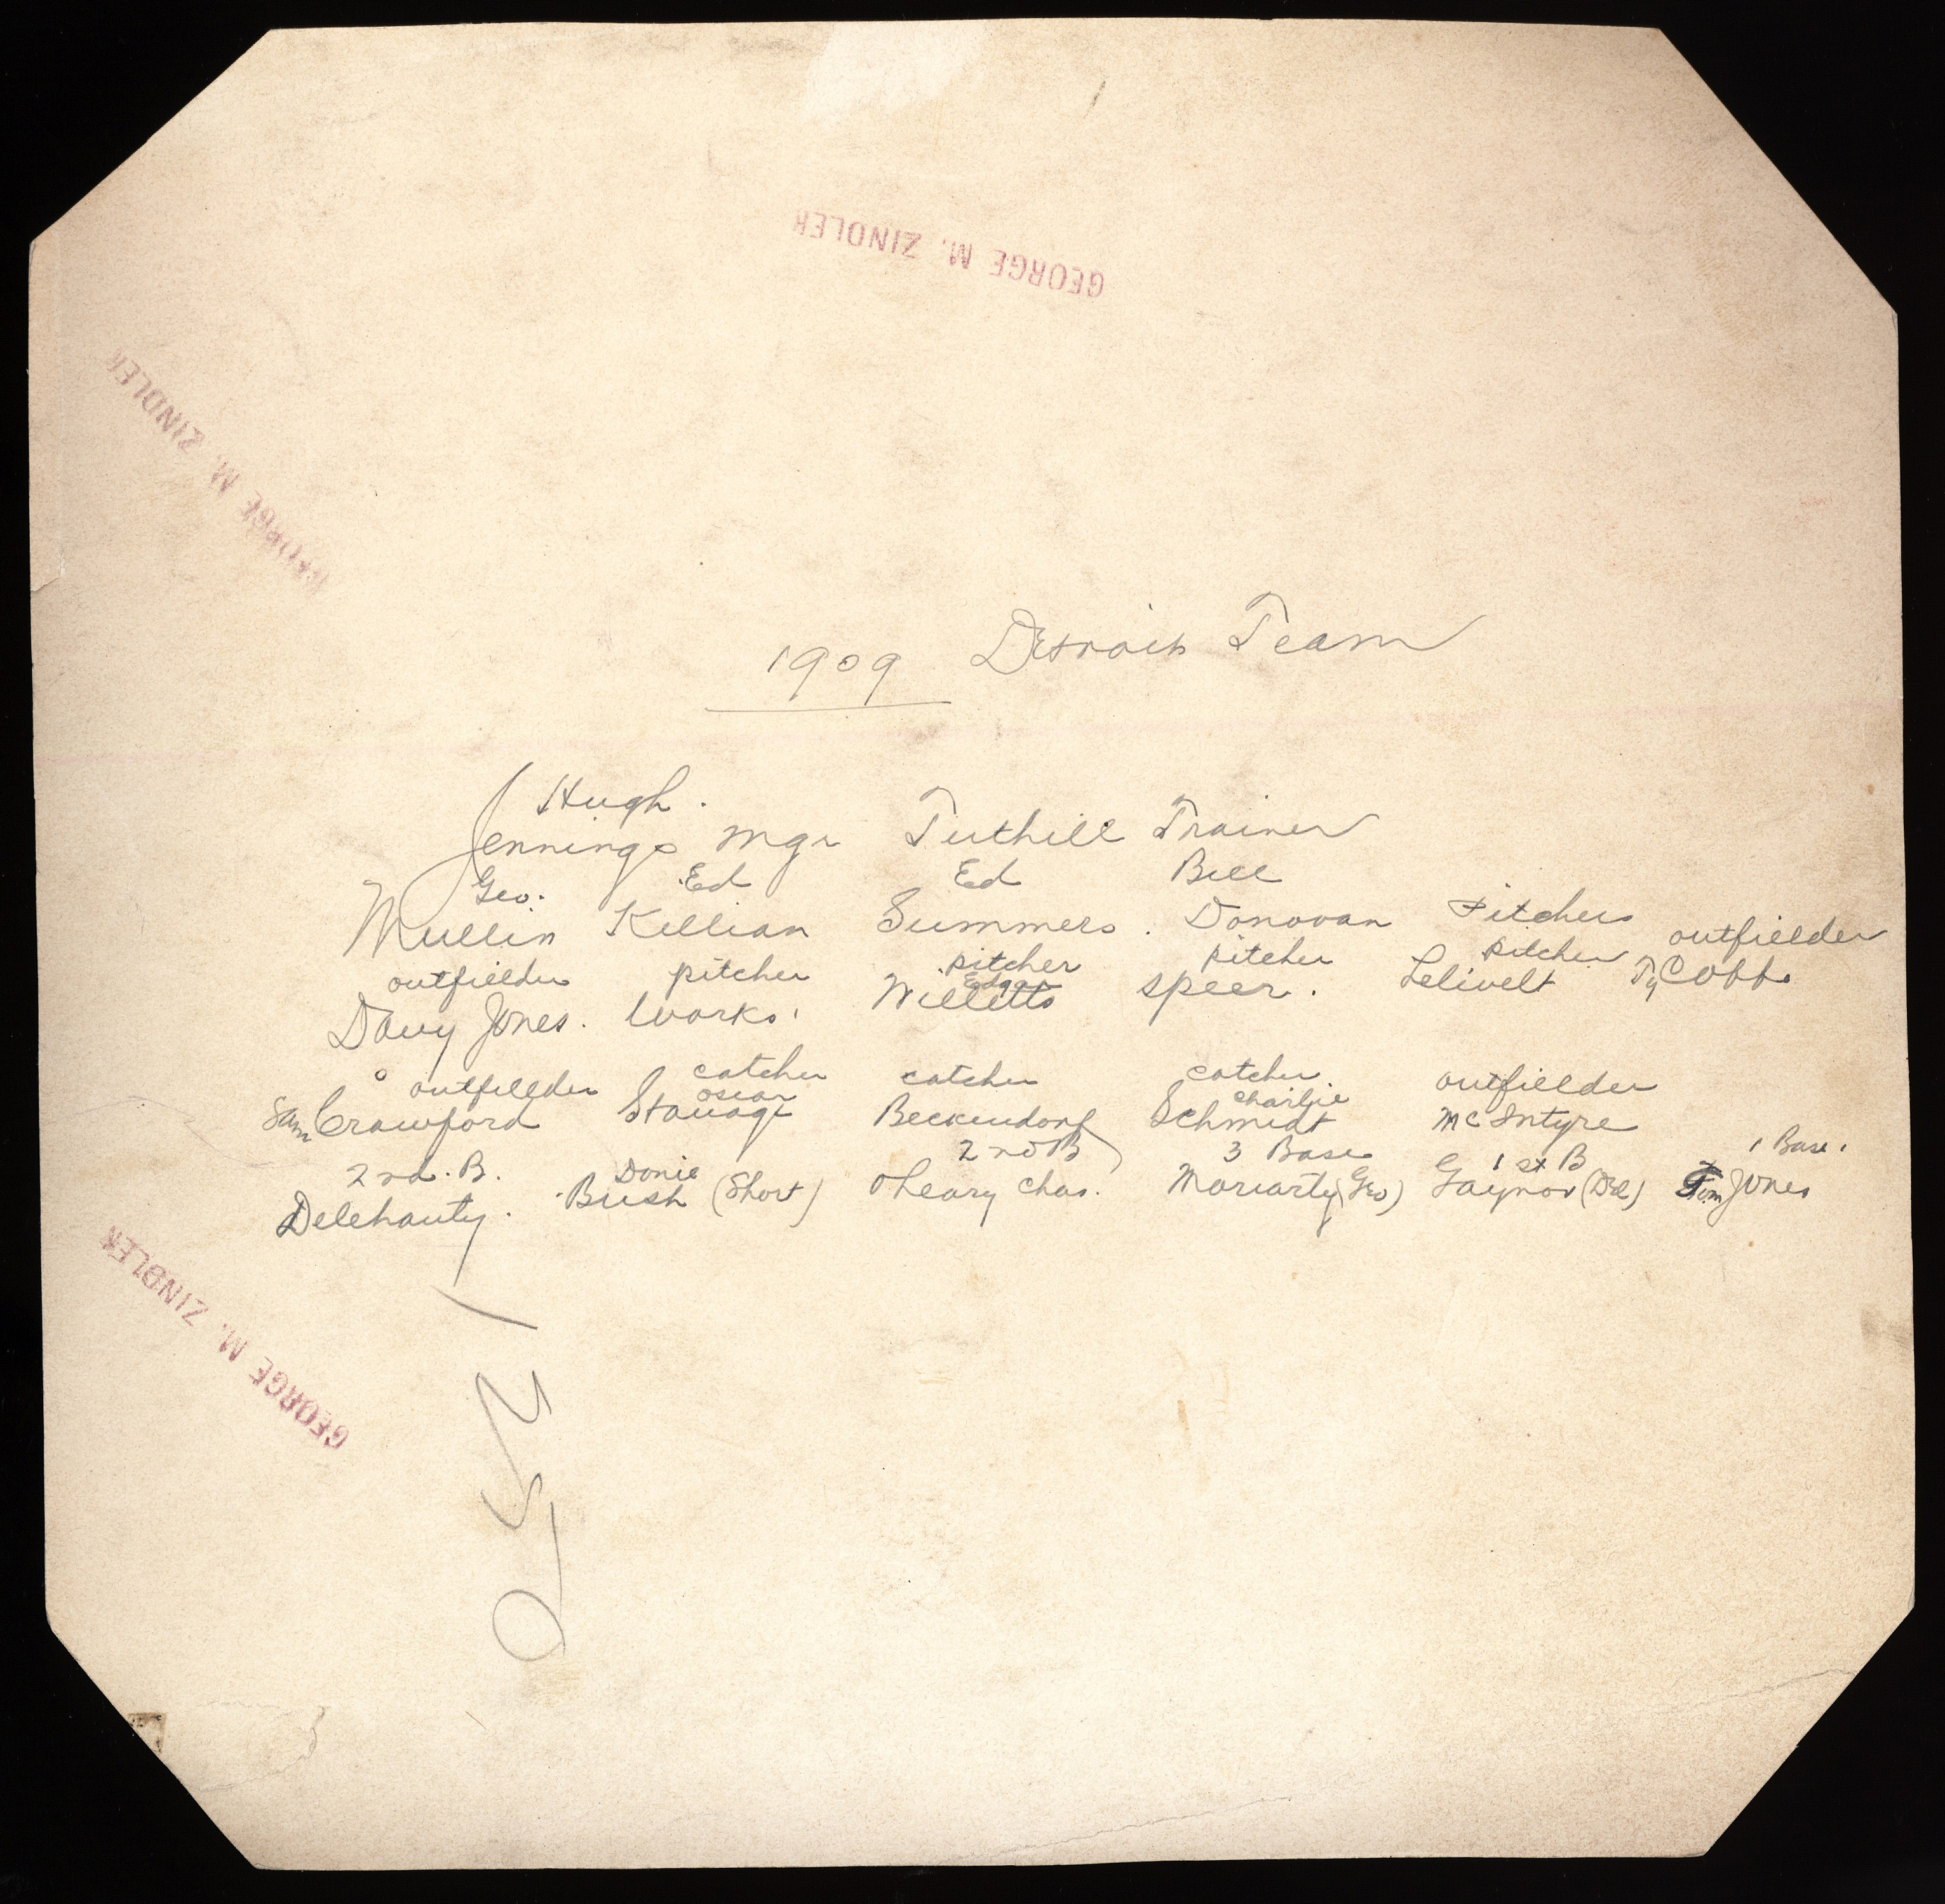 GEORGE M. ZINDLER
GEORGE M. ZINDLER
1909 Detroit Team
Hugh.
Jennings mgr Tuthill Trainer
Geo. Ed Ed Bill
Mullin Killian Summers. Donovan Pitchers
outfielder pitcher pitcher pitcher pitcher outfielder
Edgar
Davy Jones. Works. Willetts Speer. Lelivelt Ty Cobb
outfielder catcher catcher catcher. outfielder
oscar Charlie
Sam Crawford Stanage Beckendorf Schmidt McIntyre
2nd. B. Donie 2nd B 3 Base 1st B 1 Base.
Delehanty. Bush (Short) Oleary Chas. Moriarty (Geo) Gaynor (Del) Tom Jones
GEORGE M. ZINDLER